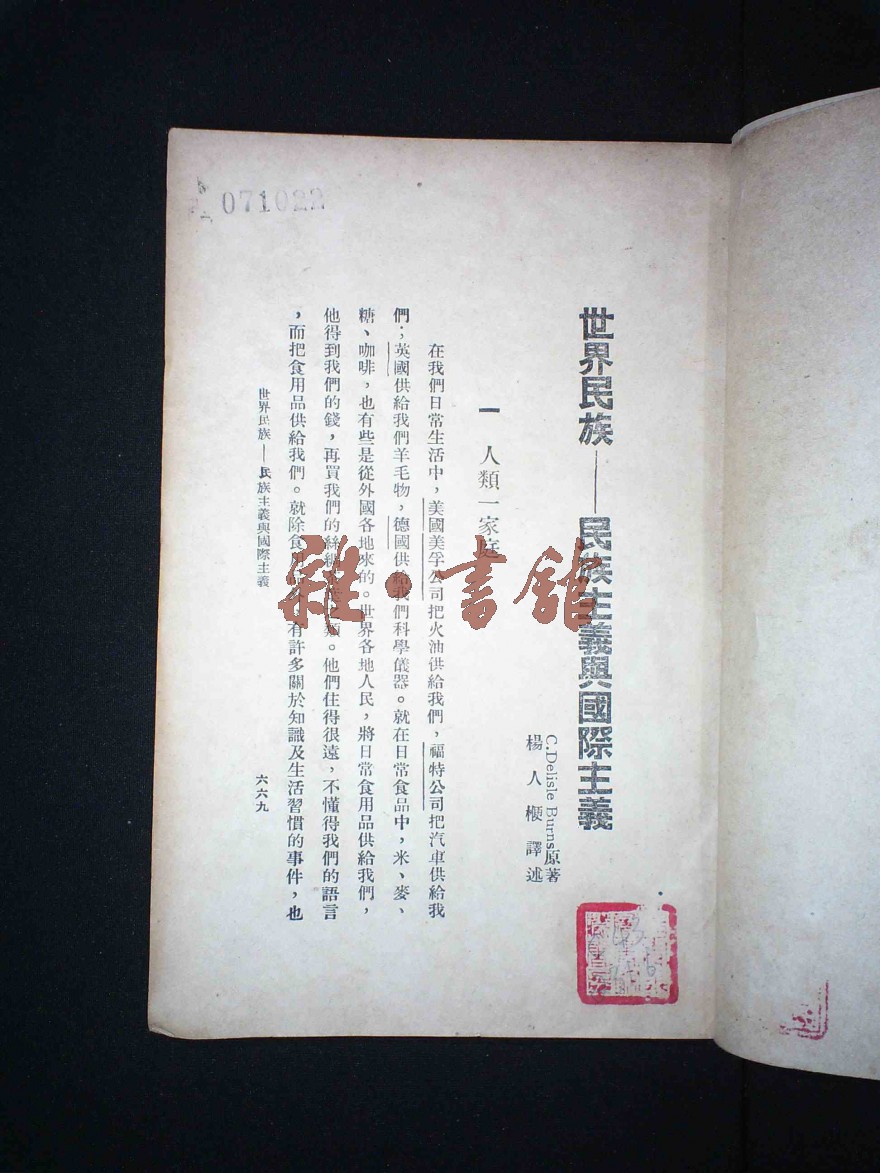 071022
世界民族——民族主義與國際主義
C.Delisle Burns原著
楊人楩譯述
一 人類一家庭
在我們日常生活中，美國美孚公司把火油供給我們，福特公司把汽車供給我
們；英國供給我們羊毛物，德國供給我們科學儀器。就在日常食品中，米、麥、
糖、咖啡，也有些是從外國各地來的。世界各地人民，將日常食用品供給我們，
他得到我們的錢，再買我們的絲綢 類。他們住得很遠，不懂得我們的語言
，而把食用品供給我們。就除食 有許多關於知識及生活習慣的事件，也
世界民族——民族主義與國際主義
六六九
雜·書館